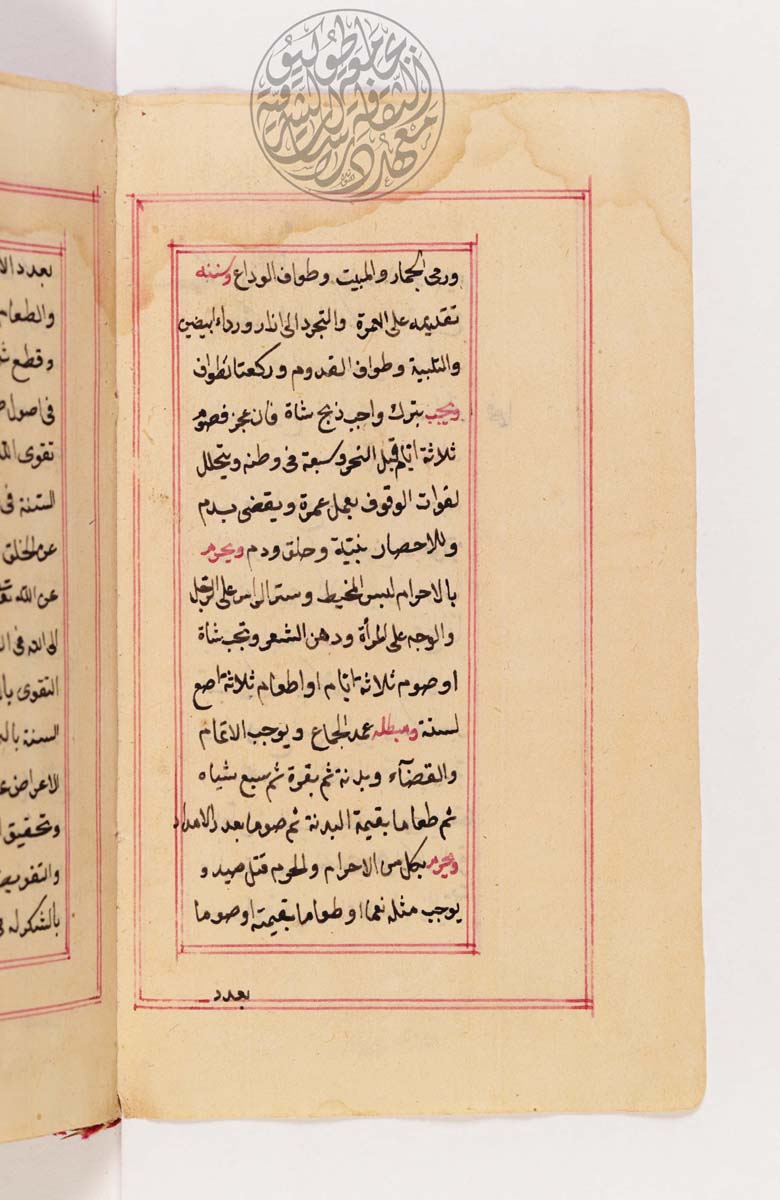 ورمى الجمار والمبيت وطواف الوداع وسننه
تقديمه على العمرة والتجرد الى ازار ورداء ابيضين
والتلبية وطواف القدوم وركعتا الطواف
ويجب بترك واجب ذبح شاة فان عجز فصوم
ثلاثة ايام قبل النحر وسبعة فى وطنه ويتحلل
لفوات الوقوف بعمل عمرة ويقضى بدم
وللاحصار بنيّة وحلق ودم ويحرم
بالاحرام لبس المخيط وستر الراس على الرّجل
والوجه على المرأة ودهن الشعر وتجب شاة
او صوم ثلاثة ايّام او اطعام ثلاثة اصع
لستة ومبطله عمد الجماع ويوجب الاتمام
والقضآء وبدنة ثم بقرة ثم سبع شياه
ثم طعاما بقيمة البدنة ثم صوما بعدد الامداد
ويحرم بكل من الاحرام والحرم قتل صيد و
يوجب مثله نعما او طعاما بقيمته او صوما
بعدد
بعدد الا
والطعام
وقطع
فى اصول
تقوى الله
السّنة فى
عن الخلق
عن الله
الى الله فى
التقوى
السنة
الاعراض
وتحقيق
والتفويض
بالشكر له
معهد دراسات الثقافة الشرقية
جامعة طوكيو